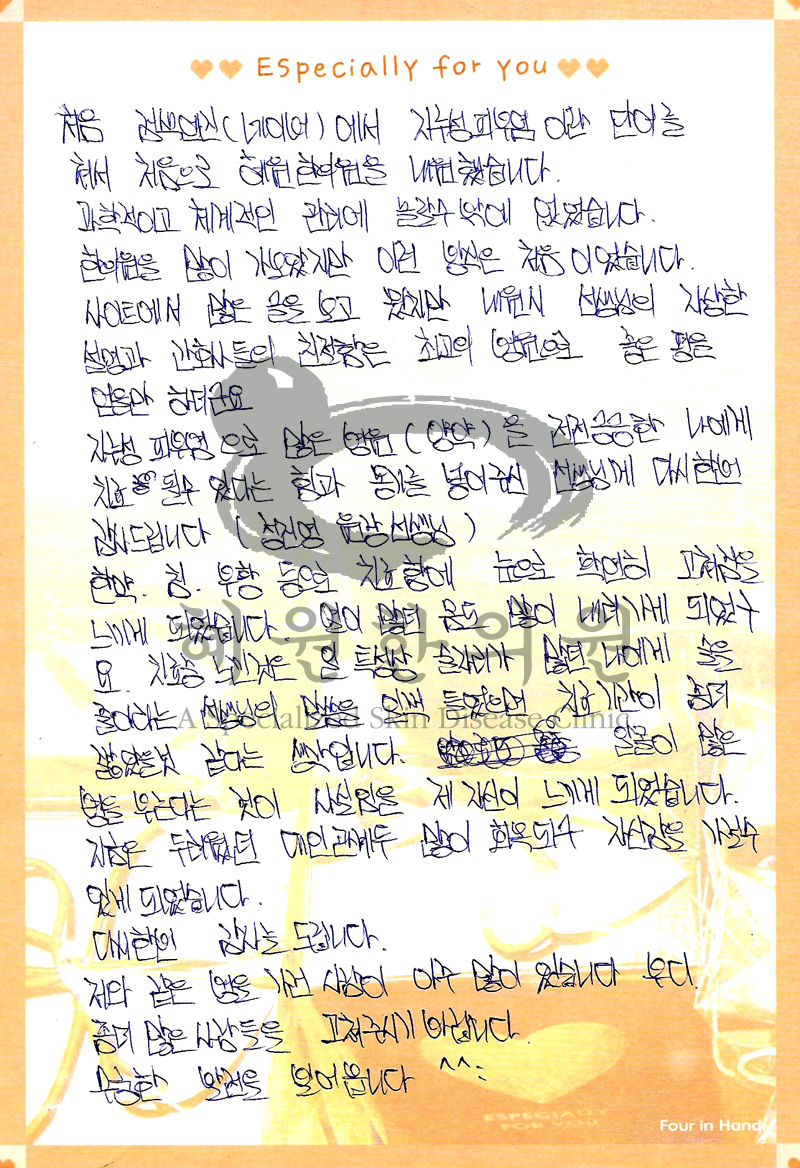 Especially for you
처음 검색엔진(네이버)에서 지루성피부염 이란 단어를
쳐서 처음으로 혜원한의원을 내원했습니다.
과학적이고 체계적인 관리에 놀랄수밖에 없었습니다.
한의원을 많이 가보았지만 이런 방식은 처음이었습니다.
사이트에서 많은 글을 보고 왔지만 내원시 선생님의 자상한
설명과 간호사들의 친절함은 최고의 병원으로 좋은 평을
얻을만 하더군요
지루성 피부염으로 많은 병원(양약)을 전전긍긍한 나에게
치료 될수 있다는 힘과 용기를 넣어주신 선생님께 다시한번
감사드립니다 (정진영 원장선생님)
한약. 침. 부황 등으로 치료함에 눈으로 확연히 고쳐짐을
느끼게 되었습니다. 열이 많던 몸도 많이 내려가게 되었구
요. 치료중 느낀것은 일 특성상 술자리가 많던 나에게 술을
줄이라는 선생님의 말씀을 일찍 들었으면 치료기간이 좀더
짧았을것 같다는 생각입니다. 알콜이 많은
병을 부른다는 것이 사실임을 제 자신이 느끼게 되었습니다.
지금은 두려웠던 대인관계두 많이 회복되구 자신감을 가질수
있게 되었습니다.
다시한번 감사를 드립니다.
저와 같은 병을 가진 사람이 아주 많이 있습니다 부디
좀더 많은사람들을 고쳐주시기 바랍니다.
무궁한 발전을 빌어봅니다 ^^;
혜원한의원
A Specialized Skin Disease Clinic
ESPECIALLY
FOR YOU
Four in Hand